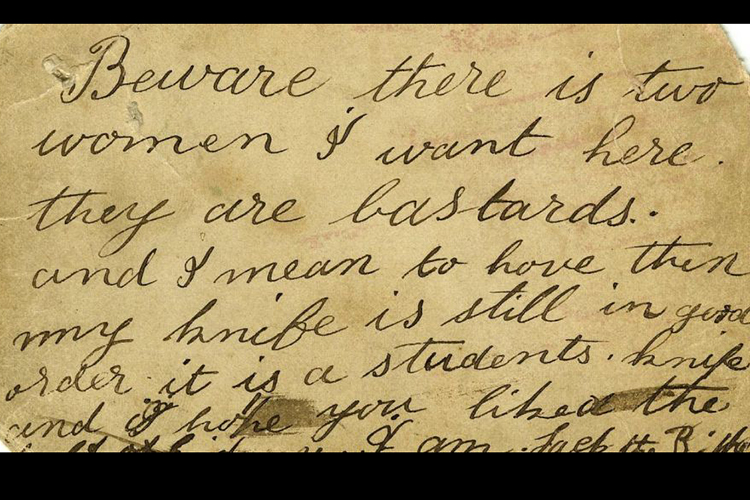 Beware there is two
women I want here.
they are bastards.
and I mean to hove then
my knife is still in good
order it is a students. knife
and I hope you liked the
I am. Jack the